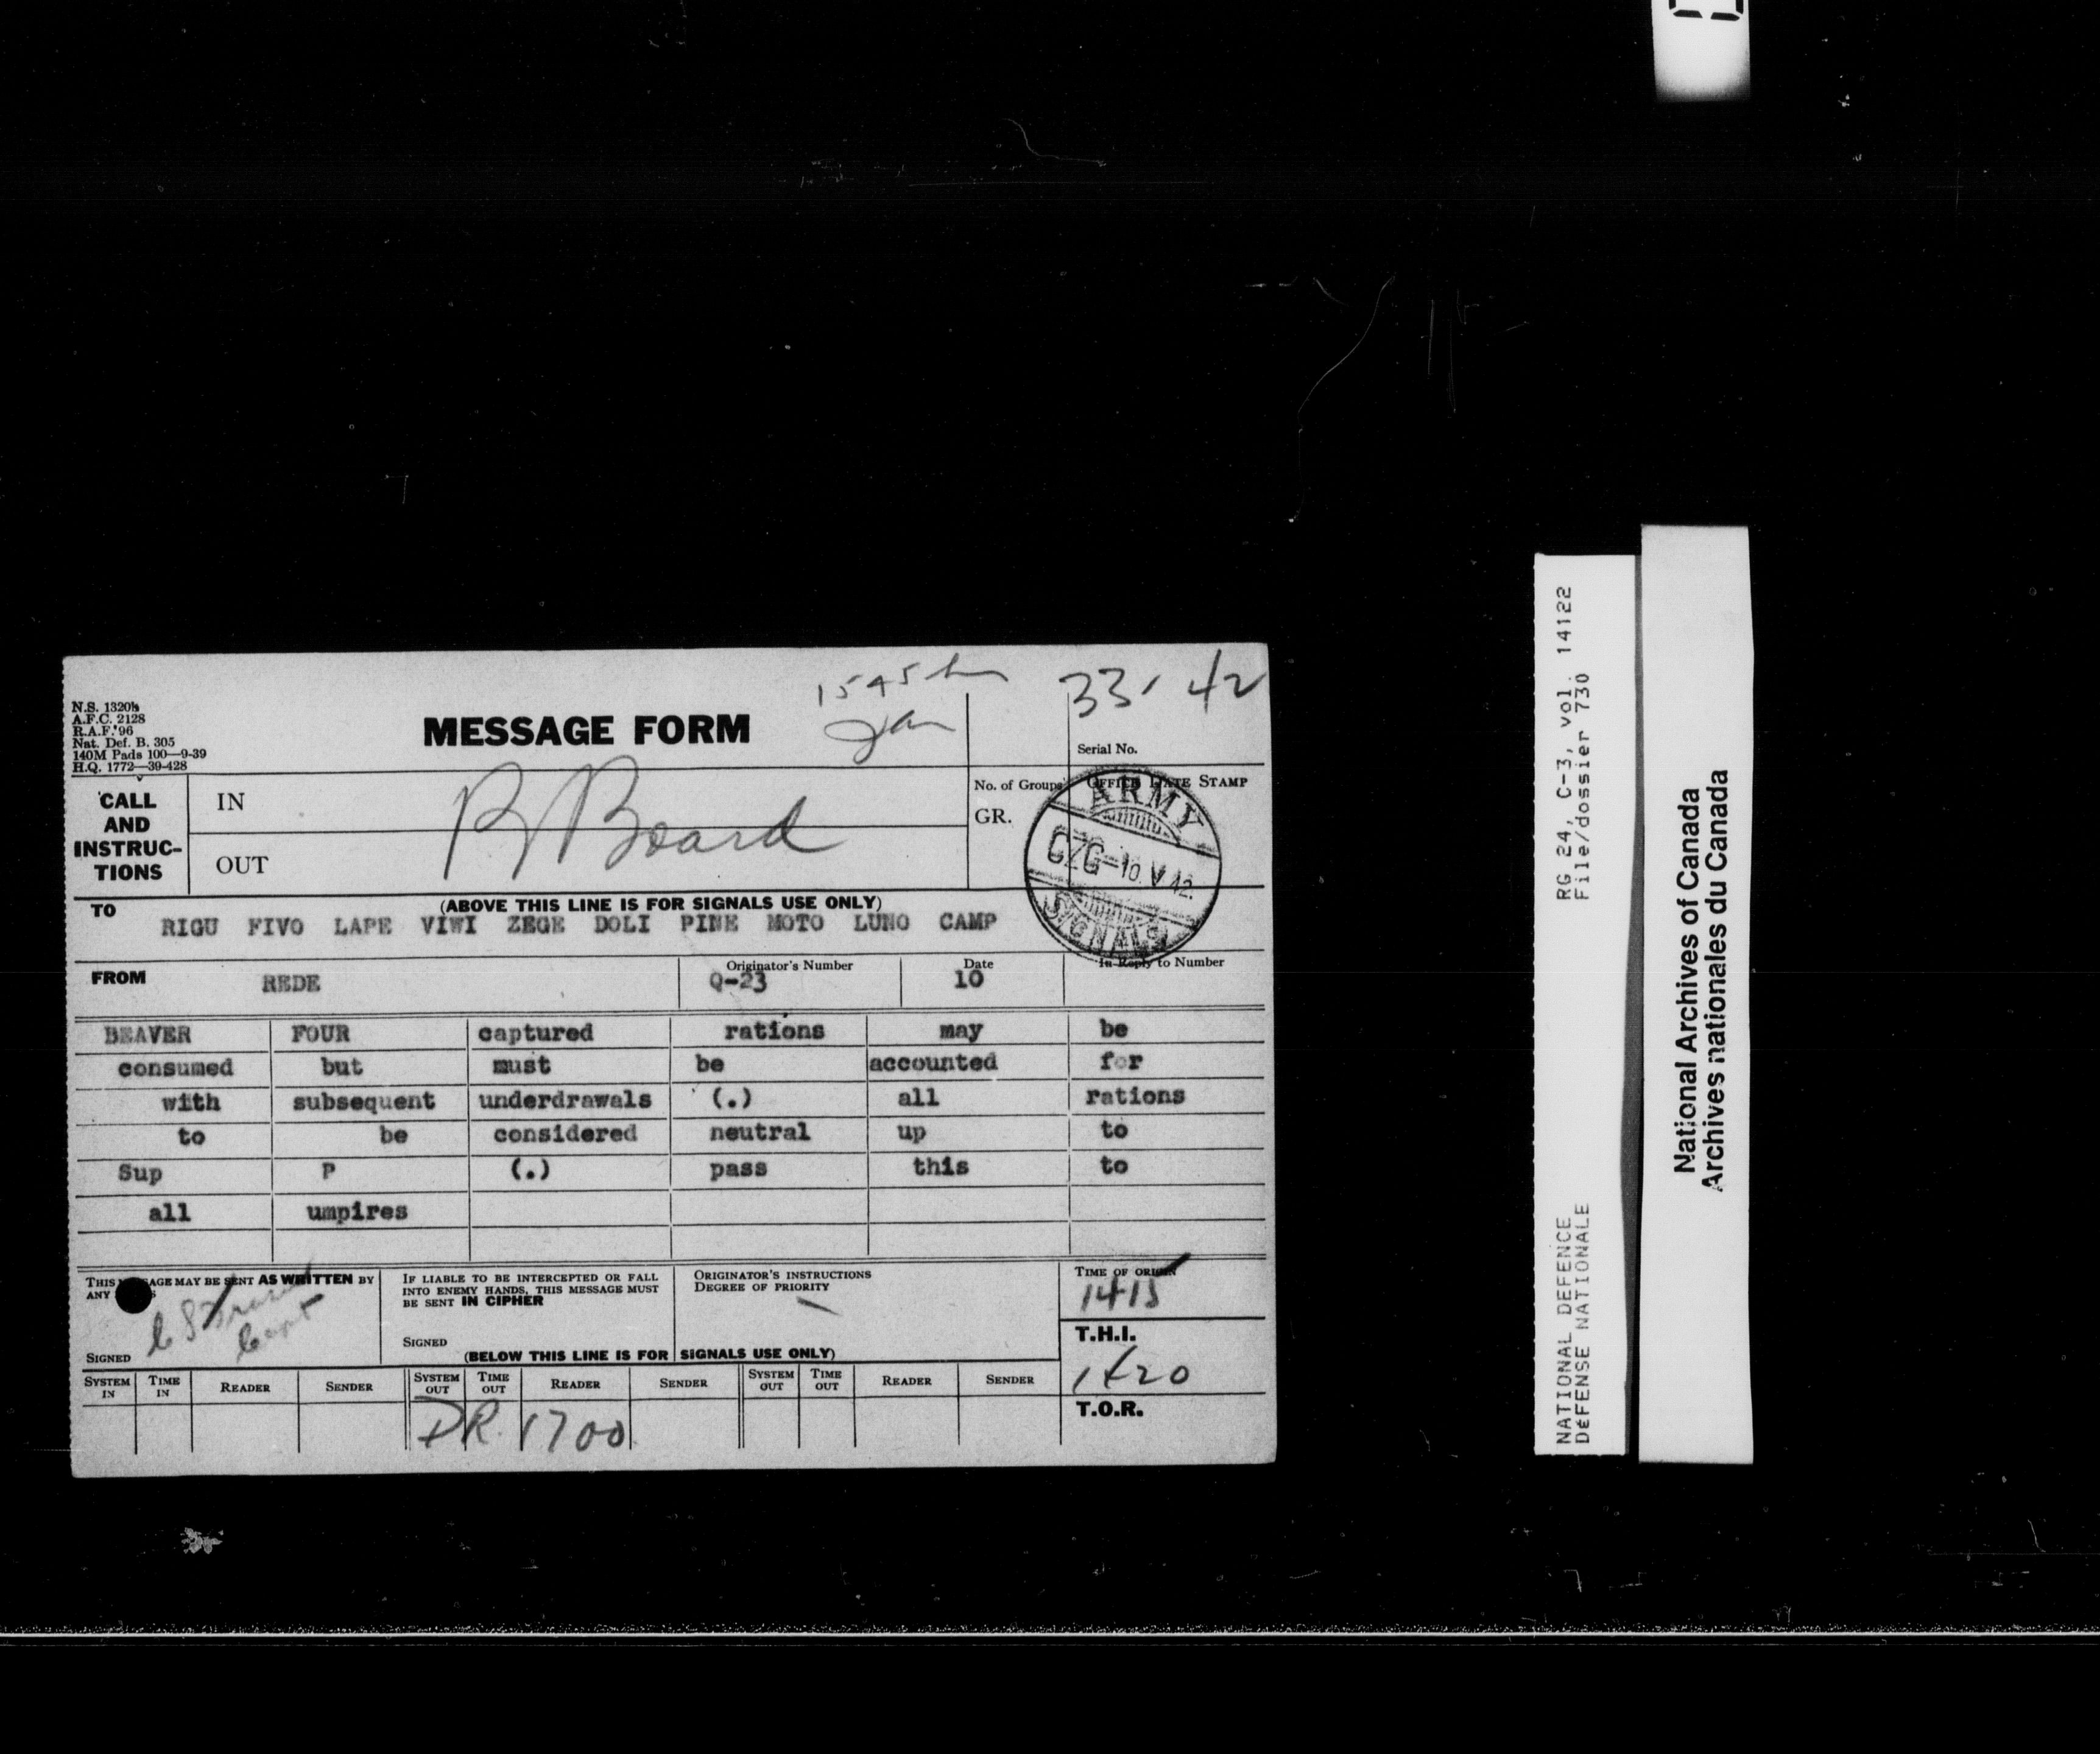 1545 hr
33. 42
N.S. 1320½
A.F.C. 2128
R.A.F. 96
Nat. Def. B. 305
140M Pads 100—9-39
H.Q. 1772—39-428
MESSAGE FORM
Serial No.
CALL AND INSTRUC-TIONS
IN
OUT
Board
No. of Groups
GR.
OFFICE DATE STAMP
ARMY
CZG-10.V.42.
SIGNALS
(ABOVE THIS LINE IS FOR SIGNALS USE ONLY)
TO RIGU FIVO LAPE VIWI ZEGE DOLI PINE MOTO LUNO CAMP
FROM REDE
Originator's Number Q-23
Date 10
In Reply to Number
BEAVER FOUR captured rations may be
consumed but must be accounted for
with subsequent underdrawals (.) all rations
to be considered neutral up to
Sup P (.) pass this to
all umpires
THIS MESSAGE MAY BE SENT AS WRITTEN BY
ANY
SIGNED
Capt
IF LIABLE TO BE INTERCEPTED OR FALL
INTO ENEMY HANDS, THIS MESSAGE MUST
BE SENT IN CIPHER
SIGNED
ORIGINATOR'S INSTRUCTIONS
DEGREE OF PRIORITY
TIME OF ORIGIN
1415
T.H.I.
1420
T.O.R.
(BELOW THIS LINE IS FOR SIGNALS USE ONLY)
SYSTEM IN TIME IN READER SENDER SYSTEM OUT TIME OUT READER SENDER SYSTEM OUT TIME OUT READER SENDER
DR 1700
RG 24, C-3, vol. 14122
File/dossier 730
NATIONAL DEFENCE
DÉFENSE NATIONALE
National Archives of Canada
Archives nationales du Canada